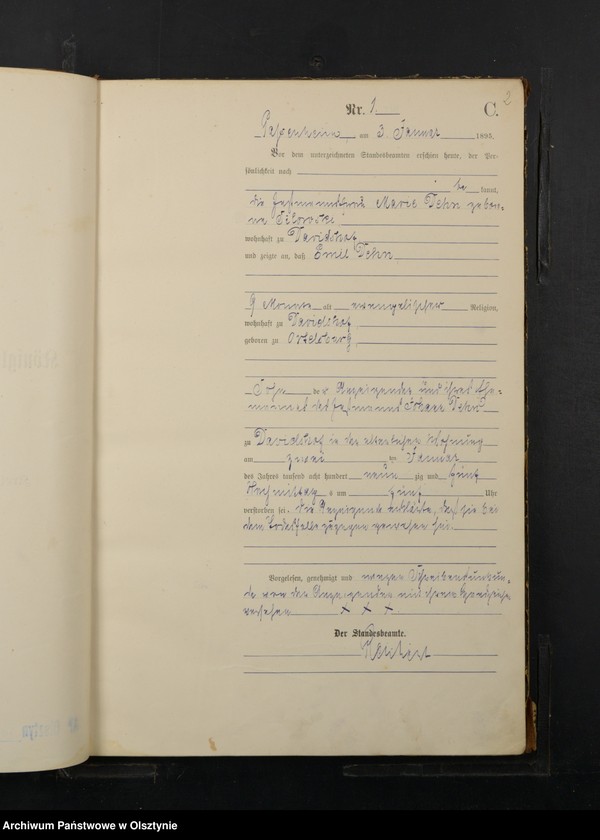 2
Nr. 1. C.
am 3. Januar 1895.
Vor dem unterzeichneten Standesbeamten erschien heute, der Per-
sönlichkeit nach
be kannt,
die Marie Dehn gebor-
ne
wohnhaft zu Davidshof
und zeigte an, daß Emil Dehn
9 Monate alt evangelischer Religion,
wohnhaft zu Davidshof
geboren zu Ortelsburg
Sohn der Anzeigenden und ihres Ehe-
mannes des Dehn
zu Davidshof in der elterlichen Wohnung
am zwei ten Januar
des Jahres tausend acht hundert neun zig und fünf
Nachmittag s um fünf Uhr
verstorben sei. Die Anzeigende erklärte, daß sie bei
dem Todesfalle zugegen gewesen sei.
Vorgelesen, genehmigt und wegen Schreibensunkun-
de von der Anzeigenden mit ihrem Handzeichen
versehen + + +
Der Standesbeamte.
Archiwum Państwowe w Olsztynie